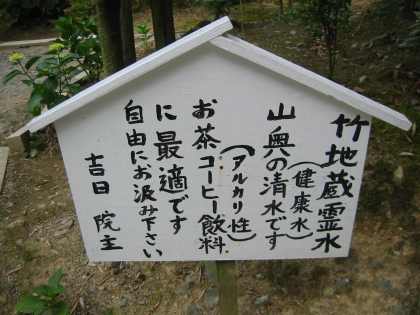 竹地蔵霊水
(健康水)
山奥の清水です
(アルカリ性)
お茶コーヒー飲料
に最適です
自由にお汲み下さい
吉日 院主